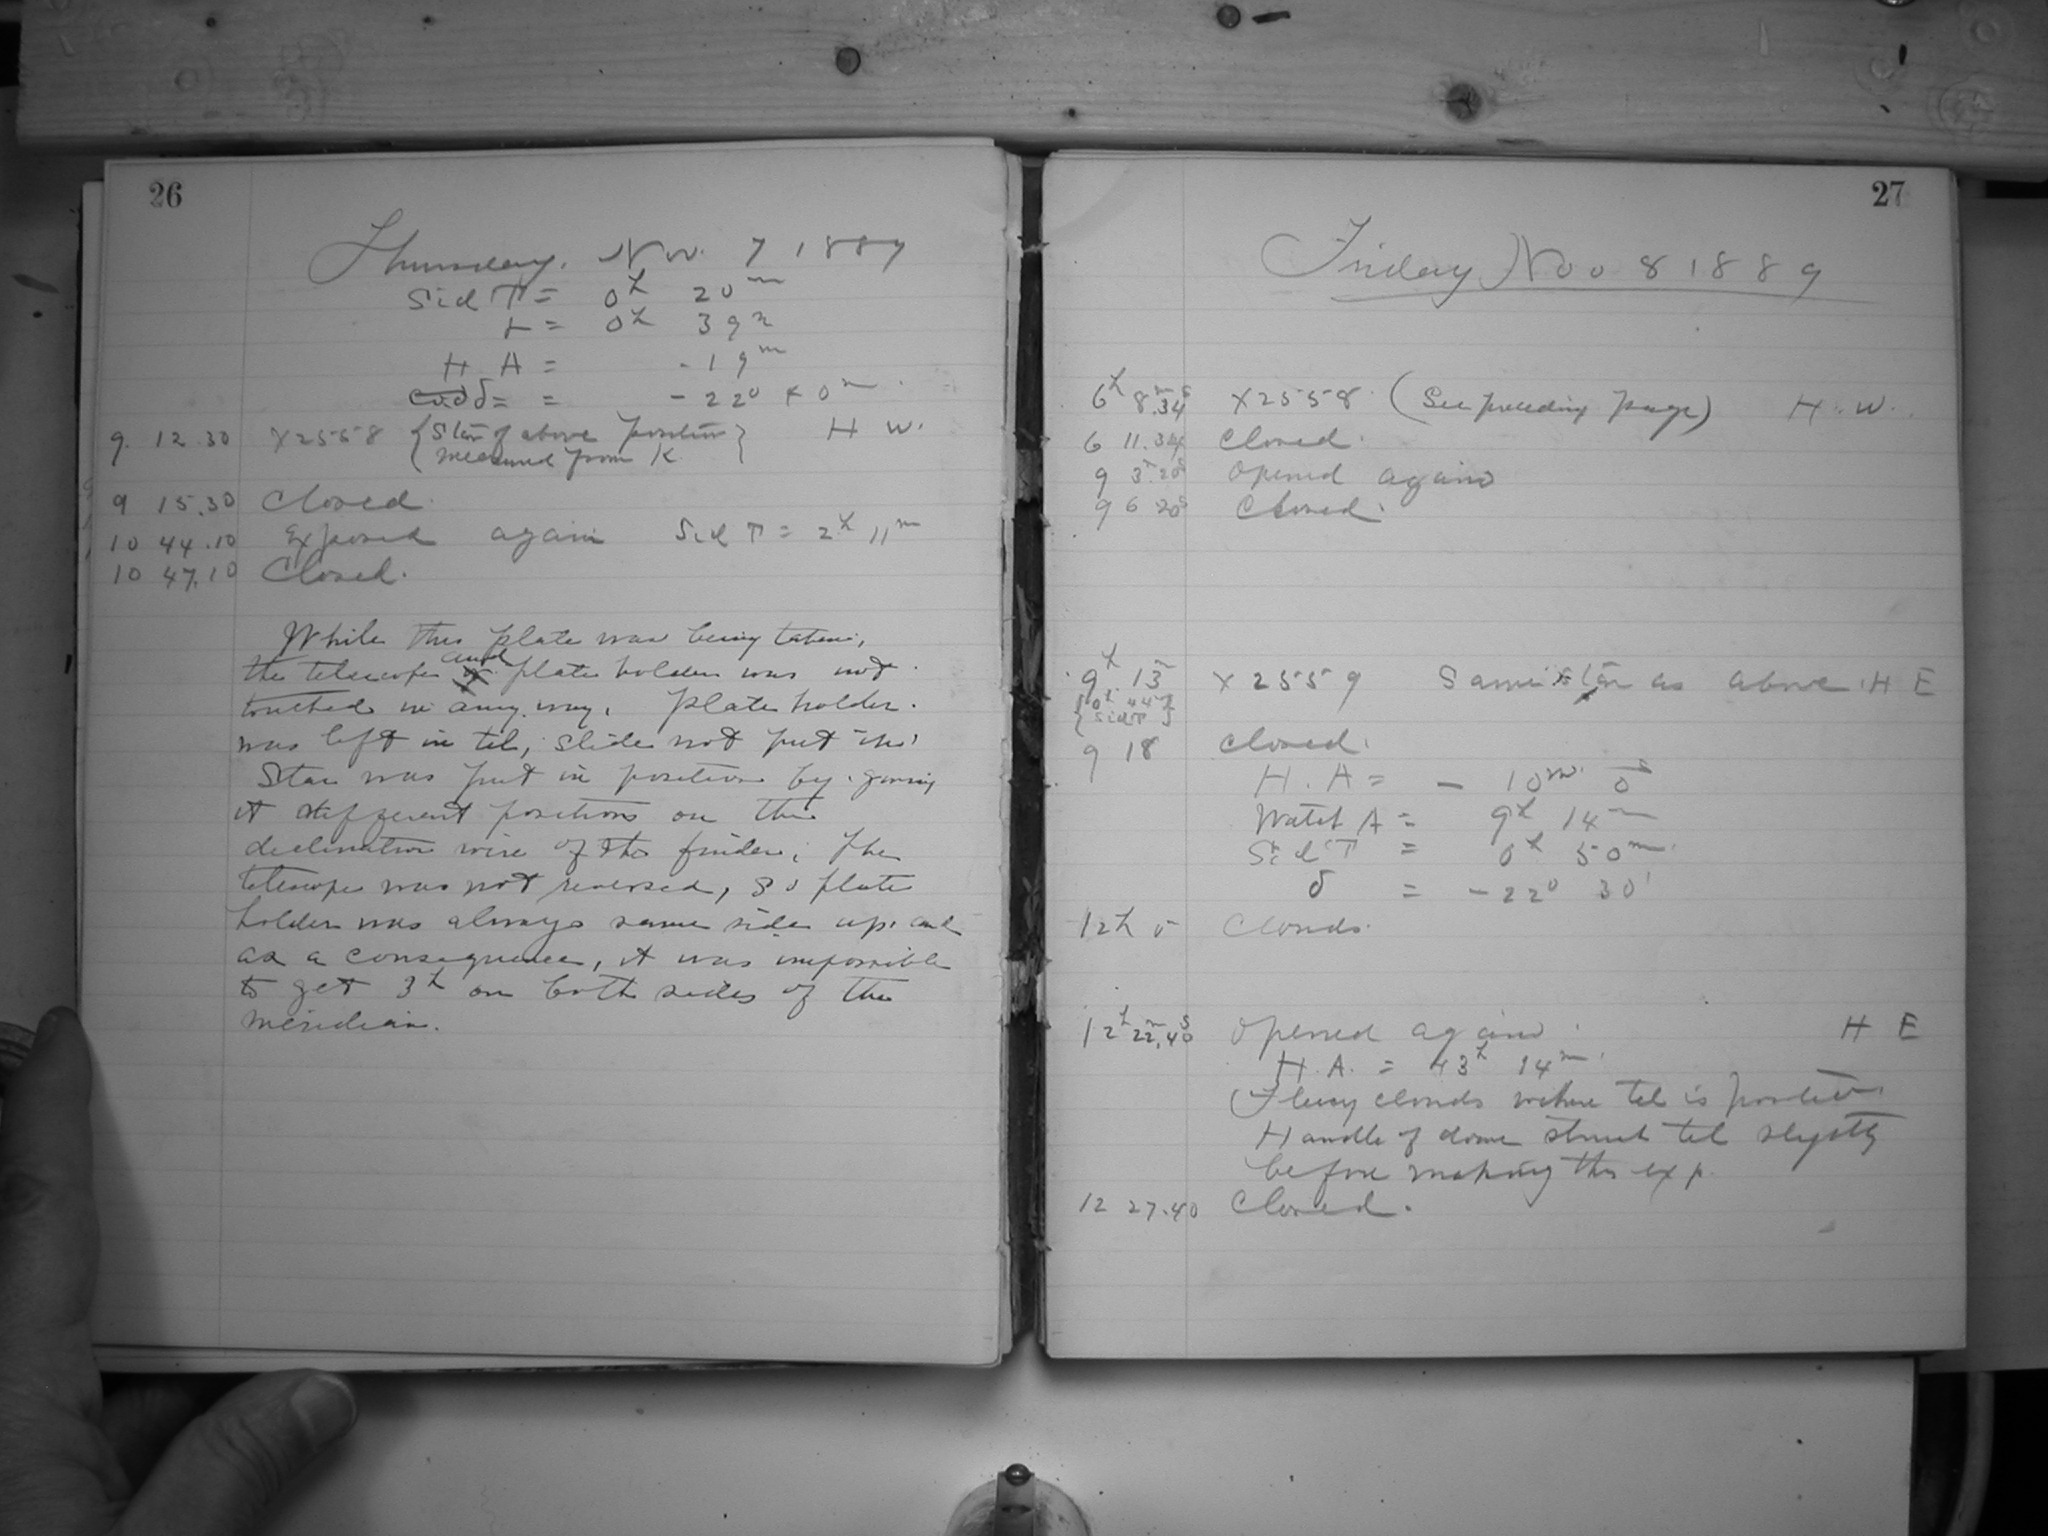 26
Thursday, Nov. 7 1889
Sid T = 0h 20m
= 0h 39m
H A = - 19m
δ = - 22° 0m
9 12.30 X2558 {Star of above position} H W.
{measured from K}
9 15.30 Closed.
10 44.10 Exposed again Sid T = 2h 11m
10 47.10 Closed.
While this plate was being taken,
the telescope and plate holder was not
touched in any way. Plate holder
was left in tel, slide not put in.
Star was put in position by giving
it different positions on the
declination wire of the finder; The
telescope was not reversed, so plate
holder was always same side up and
as a consequence, it was impossible
to get 3h on both sides of the
meridian.
27
Friday Nov 8 1889
6h 8m.34s X2558 (See preceding page) H. W.
6 11.34 Closed.
9 3m.20s Opened again
9 6 20s Closed.
9h 13m X2559 Same star as above H E
{0h 44m
Sid T}
9 18 Closed.
H. A = - 10m. 0s
Watch A = 9h 14m
Sid T = 0h 50m.
δ = - 22° 30'
12h 5 Clouds.
12h 22m.40s Opened again. H E
H. A. = +3h 14m.
Fleecy clouds where tel is pointed.
Handle of dome struck tel slightly
before making this exp.
12 27.40 Closed.